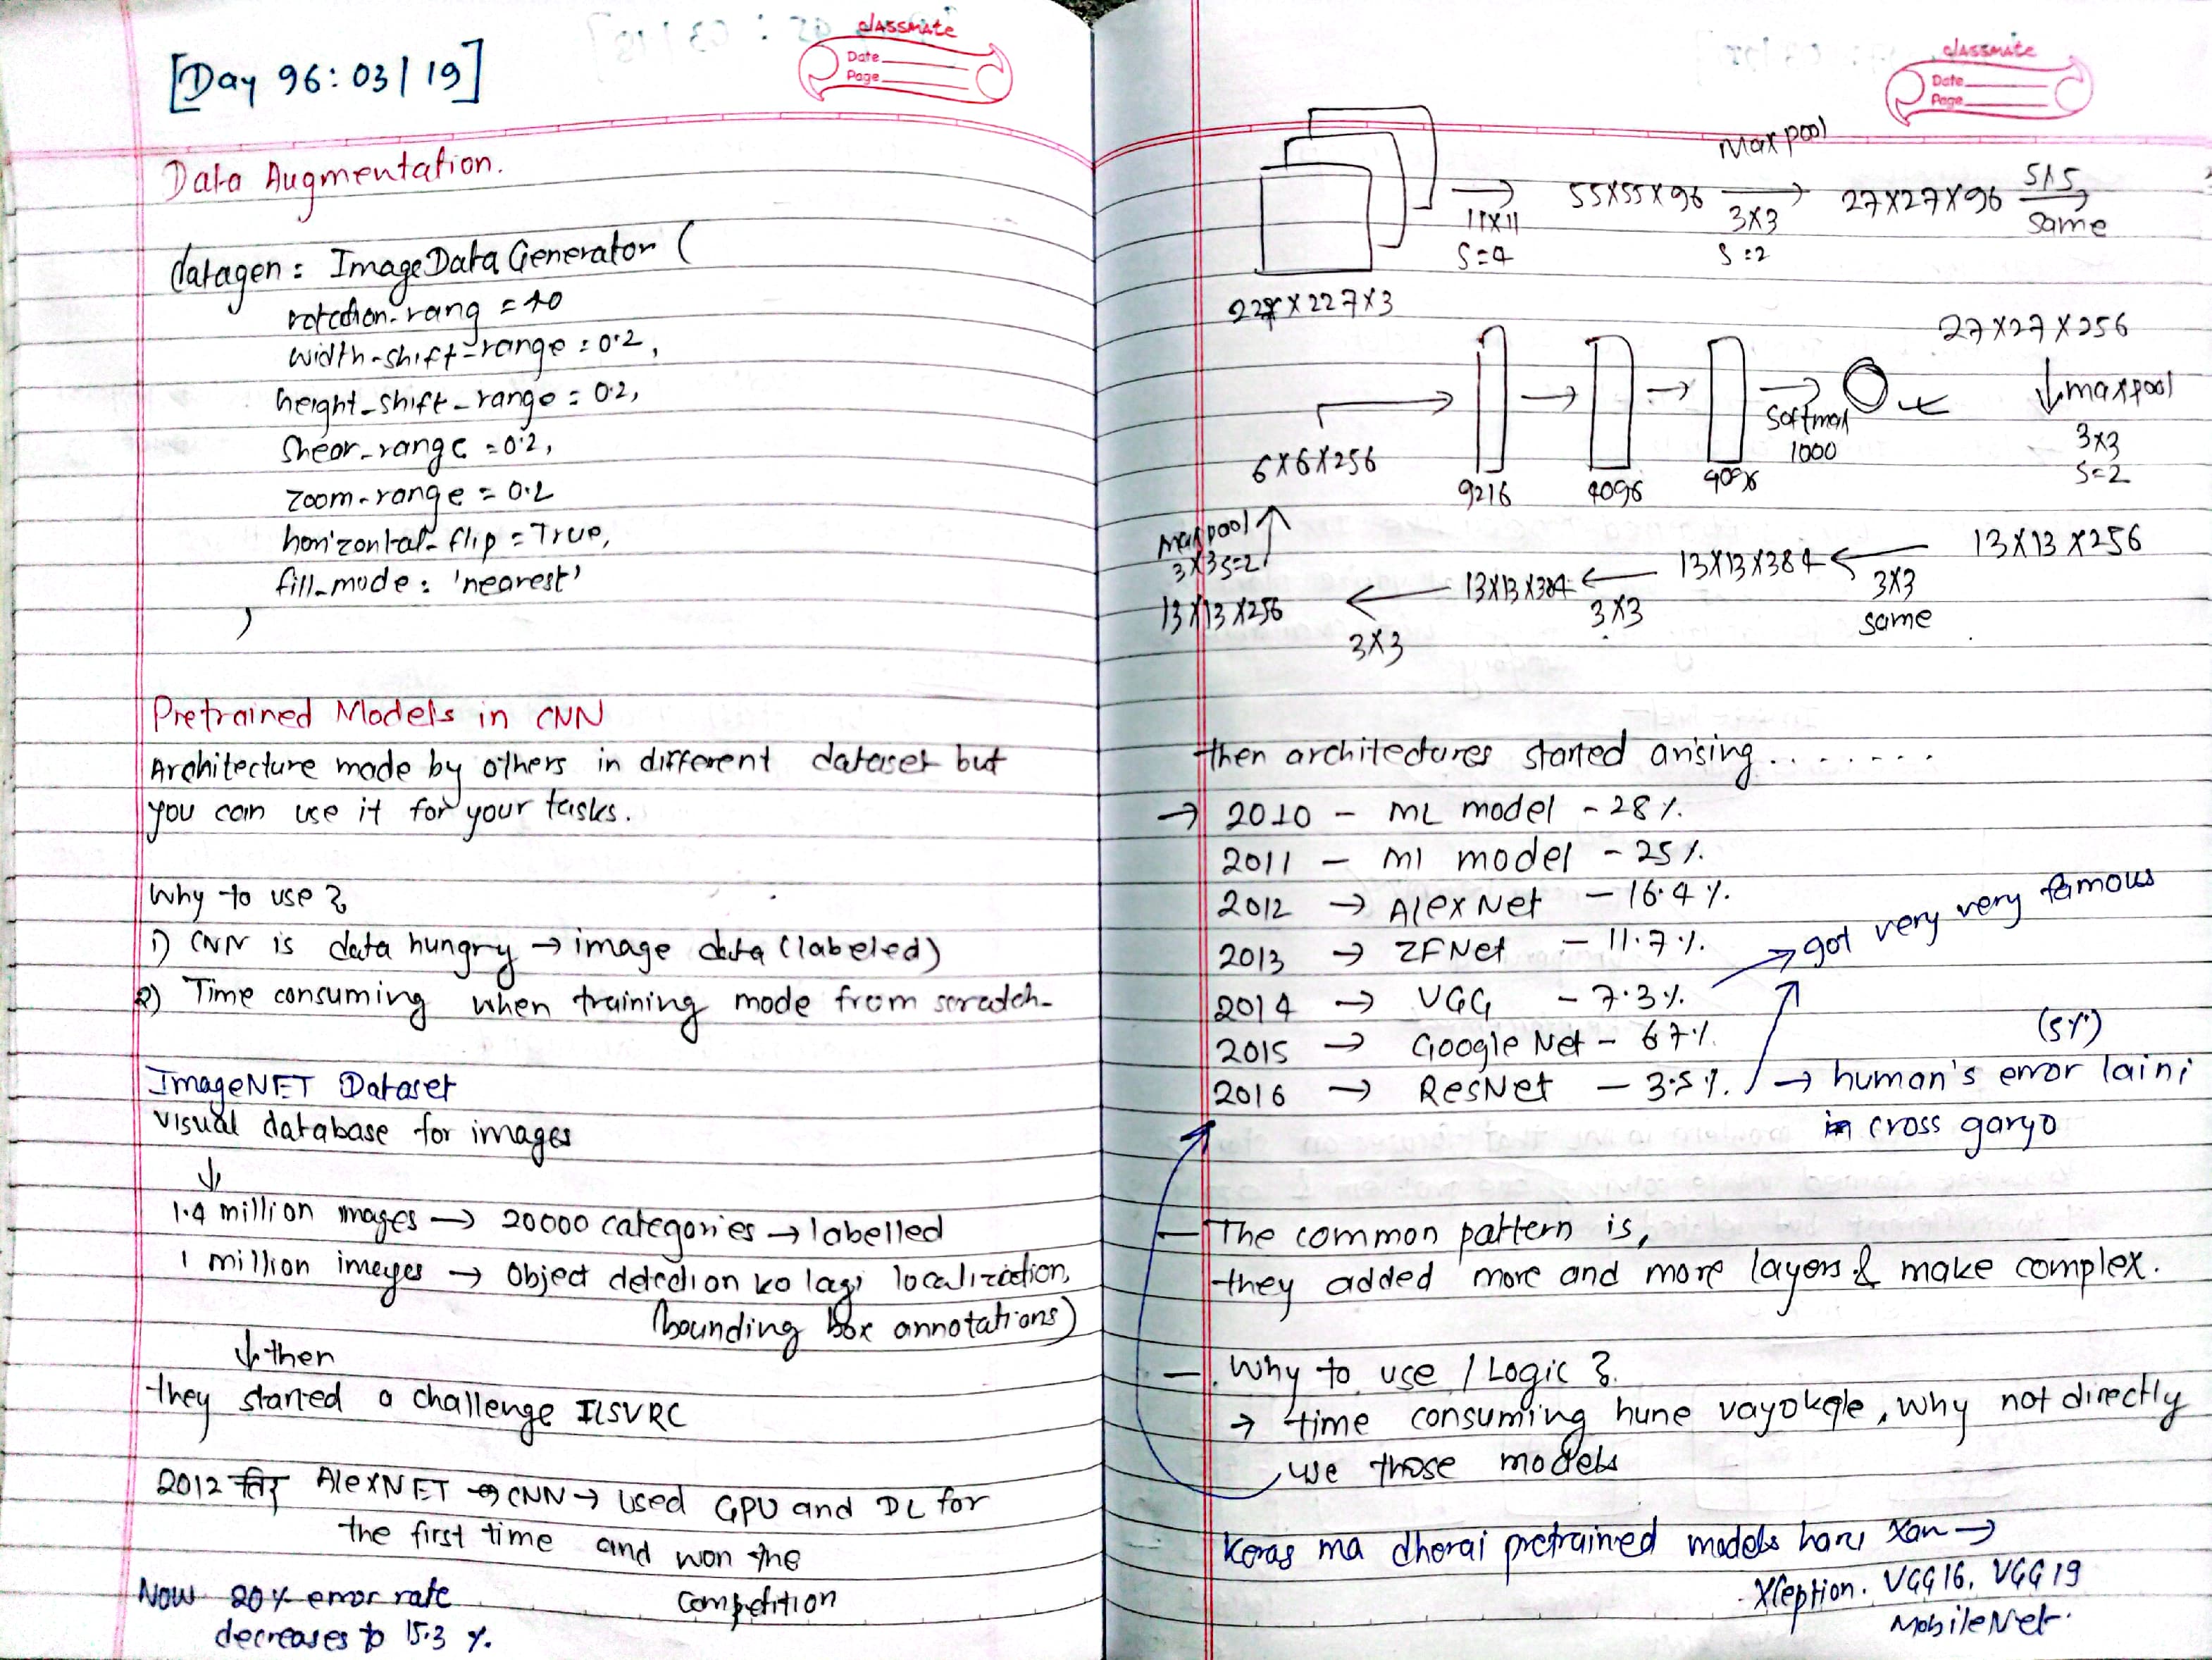 [Day 96: 03/19]
classmate
Date
Page
Data Augmentation.
datagen = ImageDataGenerator (
rotation-rang = 40
width-shift-range = 0.2,
height-shift-range = 0.2,
Shear-range = 0.2,
zoom-range = 0.2
horizontal-flip = True,
fill-mode = 'nearest'
)
Pretrained Models in CNN
Architecture made by others in different dataset but
you can use it for your tasks.
Why to use ?
1) CNN is data hungry → image data (labeled)
2) Time consuming when training mode from scratch-
ImageNET Dataset
visual database for images
↓
1.4 million images → 20000 categories → labelled
1 million images → Object detection ko lagi localization,
(bounding box annotations)
↓ then
they started a challenge ILSVRC
2012 तिर AlexNET → CNN → used GPU and DL for
the first time and won the
competition
Now 20% error rate
decreases to 15.3 %.
classmate
Date
Page
227 X 227 X 3
→
11X11
S=4
55X55X96
Maxpool
→
3X3
S=2
27X27X96
5X5
→
Same
27X27X256
↓ maxpool
3x3
S=2
13X13X256
←
3X3
same
13X13X384
←
3X3
13X13X384
←
3X3
13X13X256
Maxpool ↑
3X3 S=2
6X6X256
→
9216
→
4096
→
4096
→
Softmax
1000
then architectures started arising........
→ 2010 - ML model - 28%.
2011 - ml model - 25%.
2012 → AlexNet - 16.4%.
2013 → ZFNet - 11.7%.
2014 → VGG - 7.3%. → got very very famous
2015 → Google Net - 6.7%.
2016 → ResNet - 3.5%. → human's error laini (5%)
cross garyo
- The common pattern is,
they added more and more layers & make complex.
- Why to use / Logic ?
→ time consuming hune vayokole, why not directly
use those models
Keras ma dherai pretrained models haru xan →
Xception. VGG16, VGG19
MobileNet.